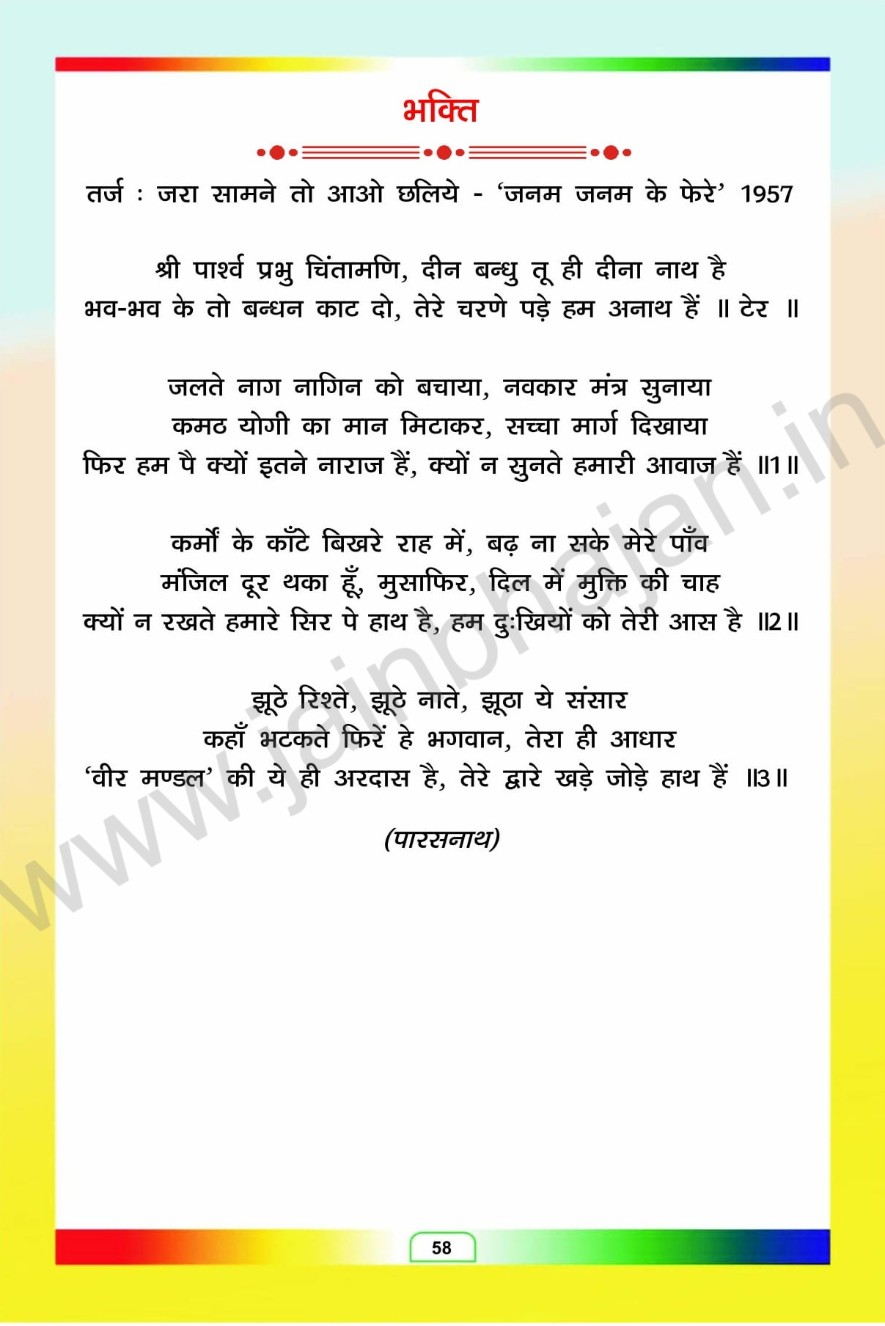 भक्ति
तर्ज : जरा सामने तो आओ छलिये - ‘जनम जनम के फेरे’ 1957
श्री पार्श्व प्रभु चिंतामणि, दीन बन्धु तू ही दीना नाथ है
भव-भव के तो बन्धन काट दो, तेरे चरणे पड़े हम अनाथ हैं ॥ टेर ॥
जलते नाग नागिन को बचाया, नवकार मंत्र सुनाया
कमठ योगी का मान मिटाकर, सच्चा मार्ग दिखाया
फिर हम पै क्यों इतने नाराज हैं, क्यों न सुनते हमारी आवाज हैं ॥1॥
कर्मों के काँटे बिखरे राह में, बढ़ ना सके मेरे पाँव
मंजिल दूर थका हूँ, मुसाफिर, दिल में मुक्ति की चाह
क्यों न रखते हमारे सिर पे हाथ है, हम दुःखियों को तेरी आस है ॥2॥
झूठे रिश्ते, झूठे नाते, झूठा ये संसार
कहाँ भटकते फिरें हे भगवान, तेरा ही आधार
‘वीर मण्डल’ की ये ही अरदास है, तेरे द्वारे खड़े जोड़े हाथ हैं ॥3॥
(पारसनाथ)
www.jainbhajan.in
58